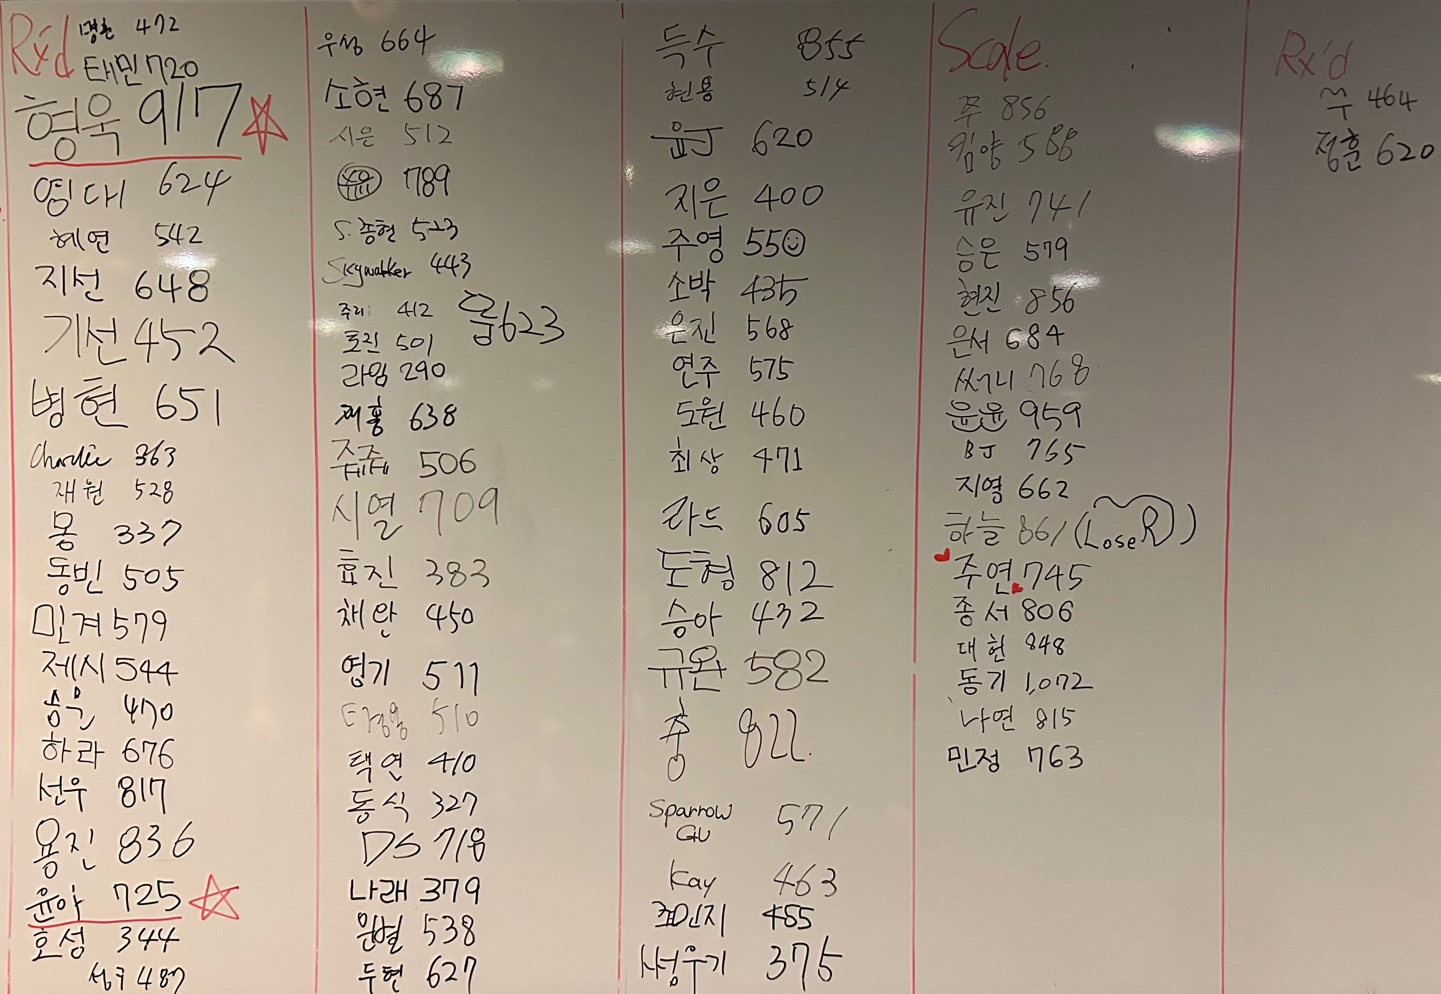 Rx'd
명훈 472
태민 720
형욱 917
영대 624
혜연 542
지선 648
기선 452
병현 651
Charlie 363
재원 528
몽 337
동빈 505
민겨 579
제시 544
승운 470
하라 676
선우 817
용진 836
윤아 725
호성 344
성구 487
우성 664
소현 687
시은 512
789
S. 종현 523
Skywalker 443
주리 412
웁 623
토진 501
라임 290
재홍 638
쥬쥬 506
시열 709
효진 383
채완 450
영기 511
510
택연 410
동식 327
DS 718
나래 379
은별 538
두현 627
득수 855
현용 514
윤J 620
지은 400
주영 550
소박 435
은진 568
연주 575
도원 460
최상 471
라드 605
도형 812
승아 432
규완 582
총 822
Sparrow
GU 571
Kay 463
최민지 485
서영우기 375
Scale.
쭈 856
김양 588
유진 741
승은 579
현진 856
은서 684
써니 768
윤윤 959
BJ 765
지영 662
하늘 861 (Lose R)
주연 745
종서 806
대헌 848
동기 1,072
나연 815
민정 763
Rx'd
쑤 464
정훈 620